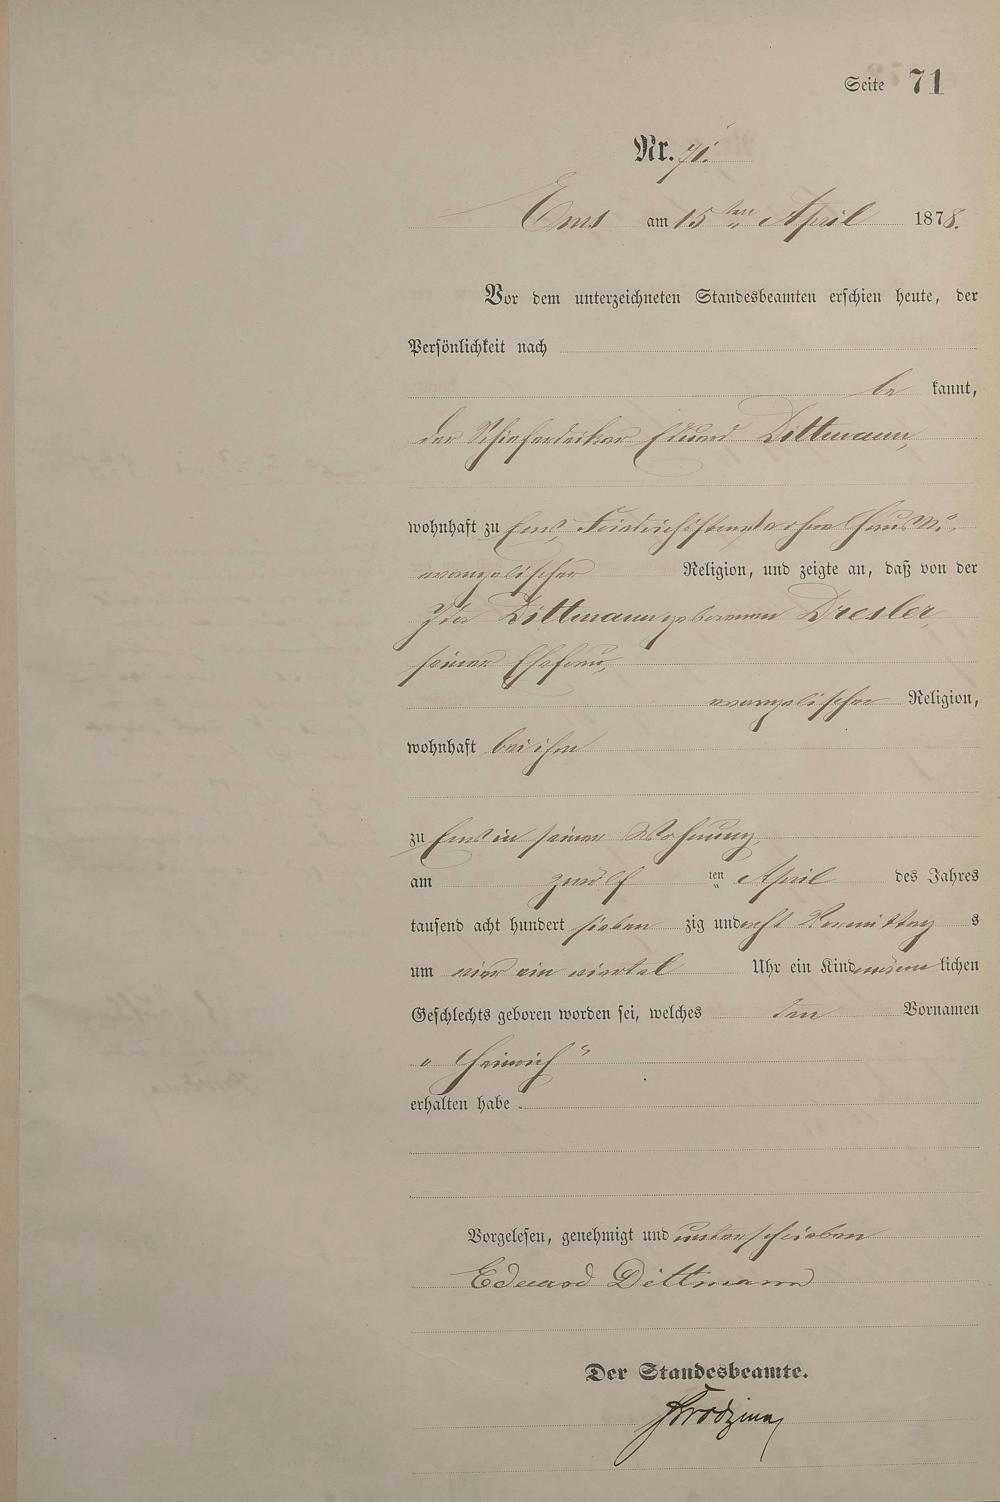 Seite 71
Nr. 71.
Ems am 15ten April 1878.
Vor dem unterzeichneten Standesbeamten erschien heute, der
Persönlichkeit nach
be kannt,
der Schieferdecker Eduard Dittmann,
wohnhaft zu Ems, Friedrichstraße ohne Haus No.
evangelischer Religion, und zeigte an, daß von der
Ida Dittmann geborenen Dresler,
seiner Ehefrau,
evangelischer Religion,
wohnhaft bei ihm
zu Ems in seiner Wohnung
am zwölf ten April des Jahres
tausend acht hundert sieben zig und acht Vormittag s
um vier ein viertel Uhr ein Kind männ lichen
Geschlechts geboren worden sei, welches den Vornamen
„Heinrich“
erhalten habe.
Vorgelesen, genehmigt und unterschrieben
Eduard Dittmann
Der Standesbeamte.